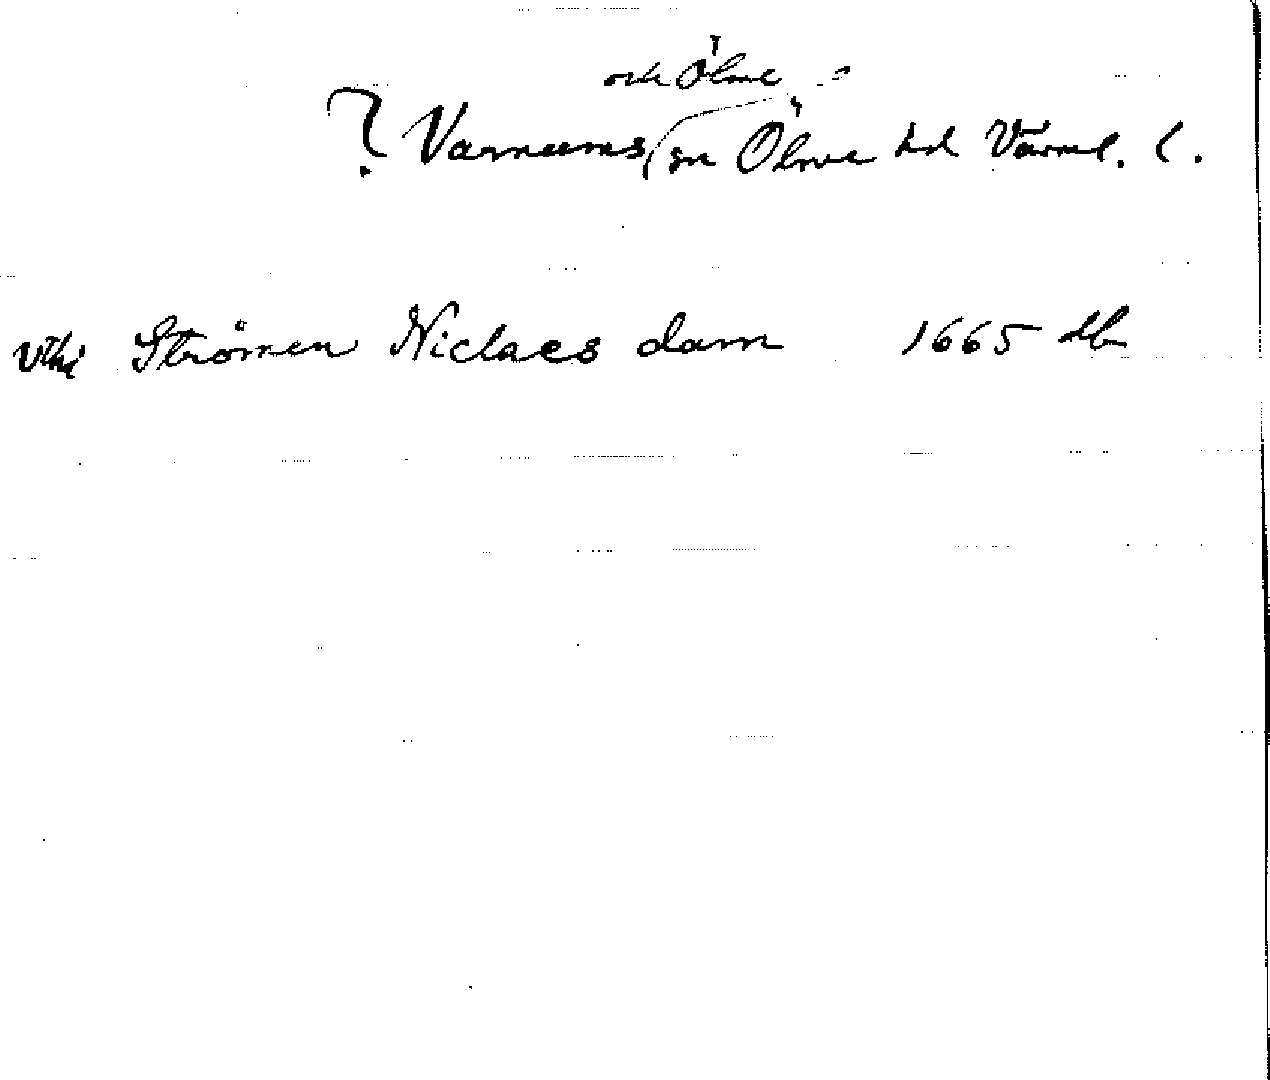 och Ölme
? Varnums sn Ölme hd Värml. l.
vthi Strömen Niclaes dam 1665 db